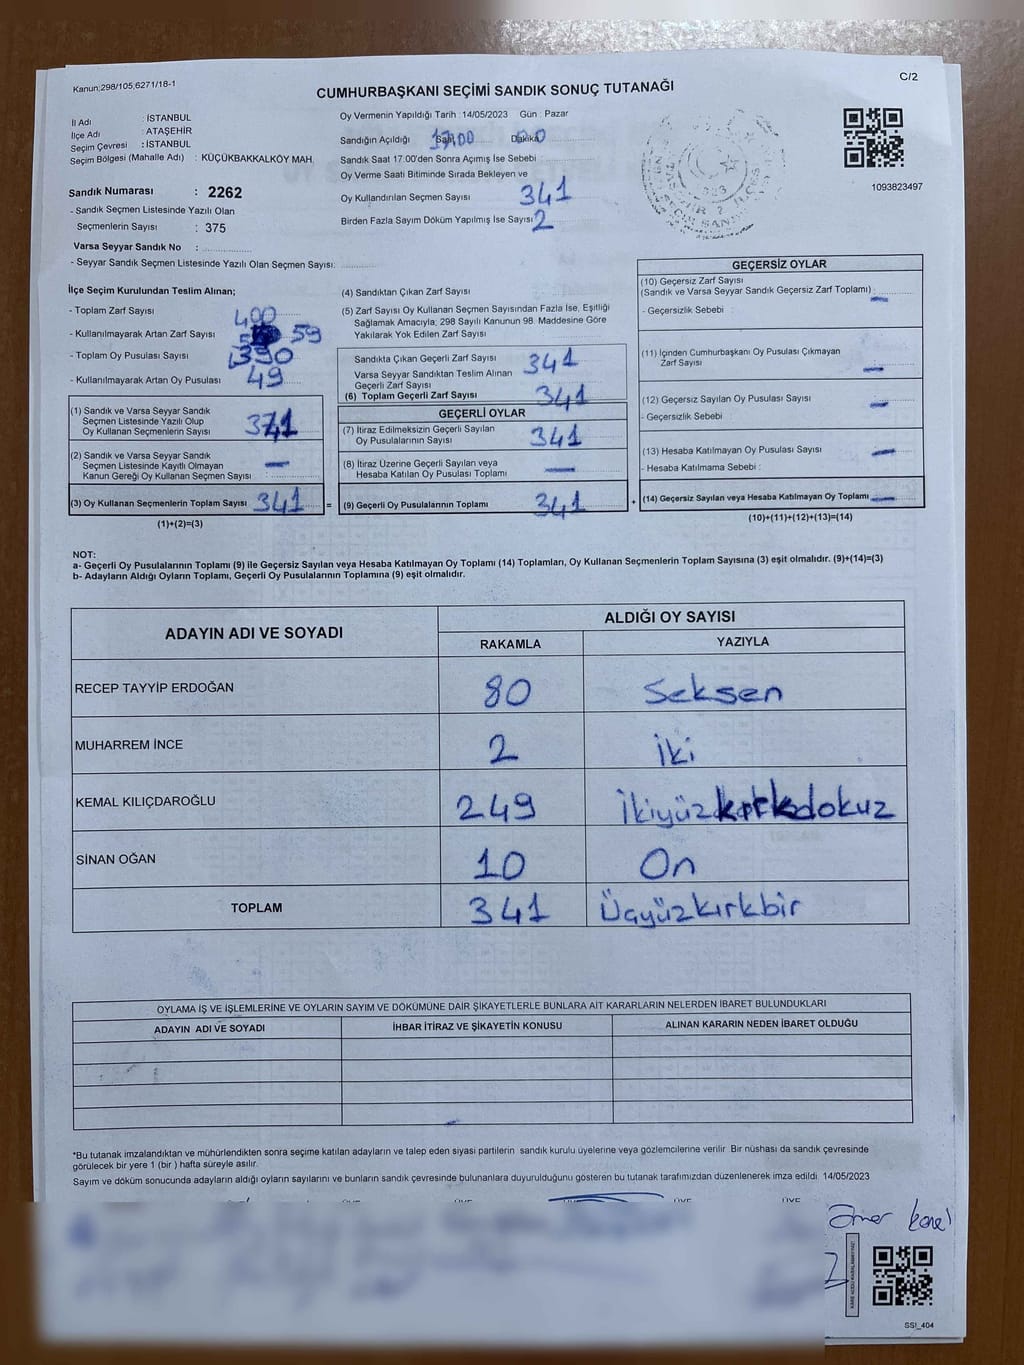 Kanun;298/105,6271/18-1
C/2
CUMHURBAŞKANI SEÇİMİ SANDIK SONUÇ TUTANAĞI
İl Adı : İSTANBUL
İlçe Adı : ATAŞEHİR
Seçim Çevresi : İSTANBUL
Seçim Bölgesi (Mahalle Adı) : KÜÇÜKBAKKALKÖY MAH.
Sandık Numarası : 2262
- Sandık Seçmen Listesinde Yazılı Olan
Seçmenlerin Sayısı : 375
Varsa Seyyar Sandık No :
- Seyyar Sandık Seçmen Listesinde Yazılı Olan Seçmen Sayısı:
Oy Vermenin Yapıldığı Tarih : 14/05/2023 Gün : Pazar
Sandığın Açıldığı Saat 17.00 Dakika 00
Sandık Saat 17:00'den Sonra Açımış İse Sebebi
Oy Verme Saati Bitiminde Sırada Bekleyen ve
Oy Kullandırılan Seçmen Sayısı 341
Birden Fazla Sayım Döküm Yapılmış İse Sayısı 2
1093823497
İlçe Seçim Kurulundan Teslim Alınan;
- Toplam Zarf Sayısı 400
- Kullanılmayarak Artan Zarf Sayısı 59
- Toplam Oy Pusulası Sayısı 390
- Kullanılmayarak Artan Oy Pusulası 49
(1) Sandık ve Varsa Seyyar Sandık
Seçmen Listesinde Yazılı Olup
Oy Kullanan Seçmenlerin Sayısı 341
(2) Sandık ve Varsa Seyyar Sandık
Seçmen Listesinde Kayıtlı Olmayan
Kanun Gereği Oy Kullanan Seçmen Sayısı : —
(3) Oy Kullanan Seçmenlerin Toplam Sayısı 341
(1)+(2)=(3)
(4) Sandıktan Çıkan Zarf Sayısı
(5) Zarf Sayısı Oy Kullanan Seçmen Sayısından Fazla İse, Eşitliği
Sağlamak Amacıyla; 298 Sayılı Kanunun 98. Maddesine Göre
Yakılarak Yok Edilen Zarf Sayısı
Sandıkta Çıkan Geçerli Zarf Sayısı 341
Varsa Seyyar Sandıktan Teslim Alınan
Geçerli Zarf Sayısı
(6) Toplam Geçerli Zarf Sayısı 341
GEÇERLİ OYLAR
(7) İtiraz Edilmeksizin Geçerli Sayılan
Oy Pusulalarının Sayısı 341
(8) İtiraz Üzerine Geçerli Sayılan veya
Hesaba Katılan Oy Pusulası Toplamı —
= (9) Geçerli Oy Pusulalarının Toplamı 341
+
GEÇERSİZ OYLAR
(10) Geçersiz Zarf Sayısı
(Sandık ve Varsa Seyyar Sandık Geçersiz Zarf Toplamı) : —
- Geçersizlik Sebebi :
(11) İçinden Cumhurbaşkanı Oy Pusulası Çıkmayan
Zarf Sayısı —
(12) Geçersiz Sayılan Oy Pusulası Sayısı —
- Geçersizlik Sebebi
(13) Hesaba Katılmayan Oy Pusulası Sayısı —
- Hesaba Katılmama Sebebi :
(14) Geçersiz Sayılan veya Hesaba Katılmayan Oy Toplamı —
(10)+(11)+(12)+(13)=(14)
NOT:
a- Geçerli Oy Pusulalarının Toplamı (9) ile Geçersiz Sayılan veya Hesaba Katılmayan Oy Toplamı (14) Toplamları, Oy Kullanan Seçmenlerin Toplam Sayısına (3) eşit olmalıdır. (9)+(14)=(3)
b- Adayların Aldığı Oyların Toplamı, Geçerli Oy Pusulalarının Toplamına (9) eşit olmalıdır.
ADAYIN ADI VE SOYADI
ALDIĞI OY SAYISI
RAKAMLA YAZIYLA
RECEP TAYYİP ERDOĞAN 80 Seksen
MUHARREM İNCE 2 İki
KEMAL KILIÇDAROĞLU 249 İkiyüzkırkdokuz
SİNAN OĞAN 10 On
TOPLAM 341 Üçyüzkırkbir
OYLAMA İŞ VE İŞLEMLERİNE VE OYLARIN SAYIM VE DÖKÜMÜNE DAİR ŞİKAYETLERLE BUNLARA AİT KARARLARIN NELERDEN İBARET BULUNDUKLARI
ADAYIN ADI VE SOYADI İHBAR İTİRAZ VE ŞİKAYETİN KONUSU ALINAN KARARIN NEDEN İBARET OLDUĞU
*Bu tutanak imzalandıktan ve mühürlendikten sonra seçime katılan adayların ve talep eden siyasi partilerin sandık kurulu üyelerine veya gözlemcilerine verilir. Bir nüshası da sandık çevresinde
görülecek bir yere 1 (bir ) hafta süreyle asılır.
Sayım ve döküm sonucunda adayların aldığı oyların sayılarını ve bunların sandık çevresinde bulunanlara duyurulduğunu gösteren bu tutanak tarafımızdan düzenlenerek imza edildi. 14/05/2023
ÜYE ÜYE ÜYE ÜYE
KARE KODU KARALAMAYINIZ!
SSI_404